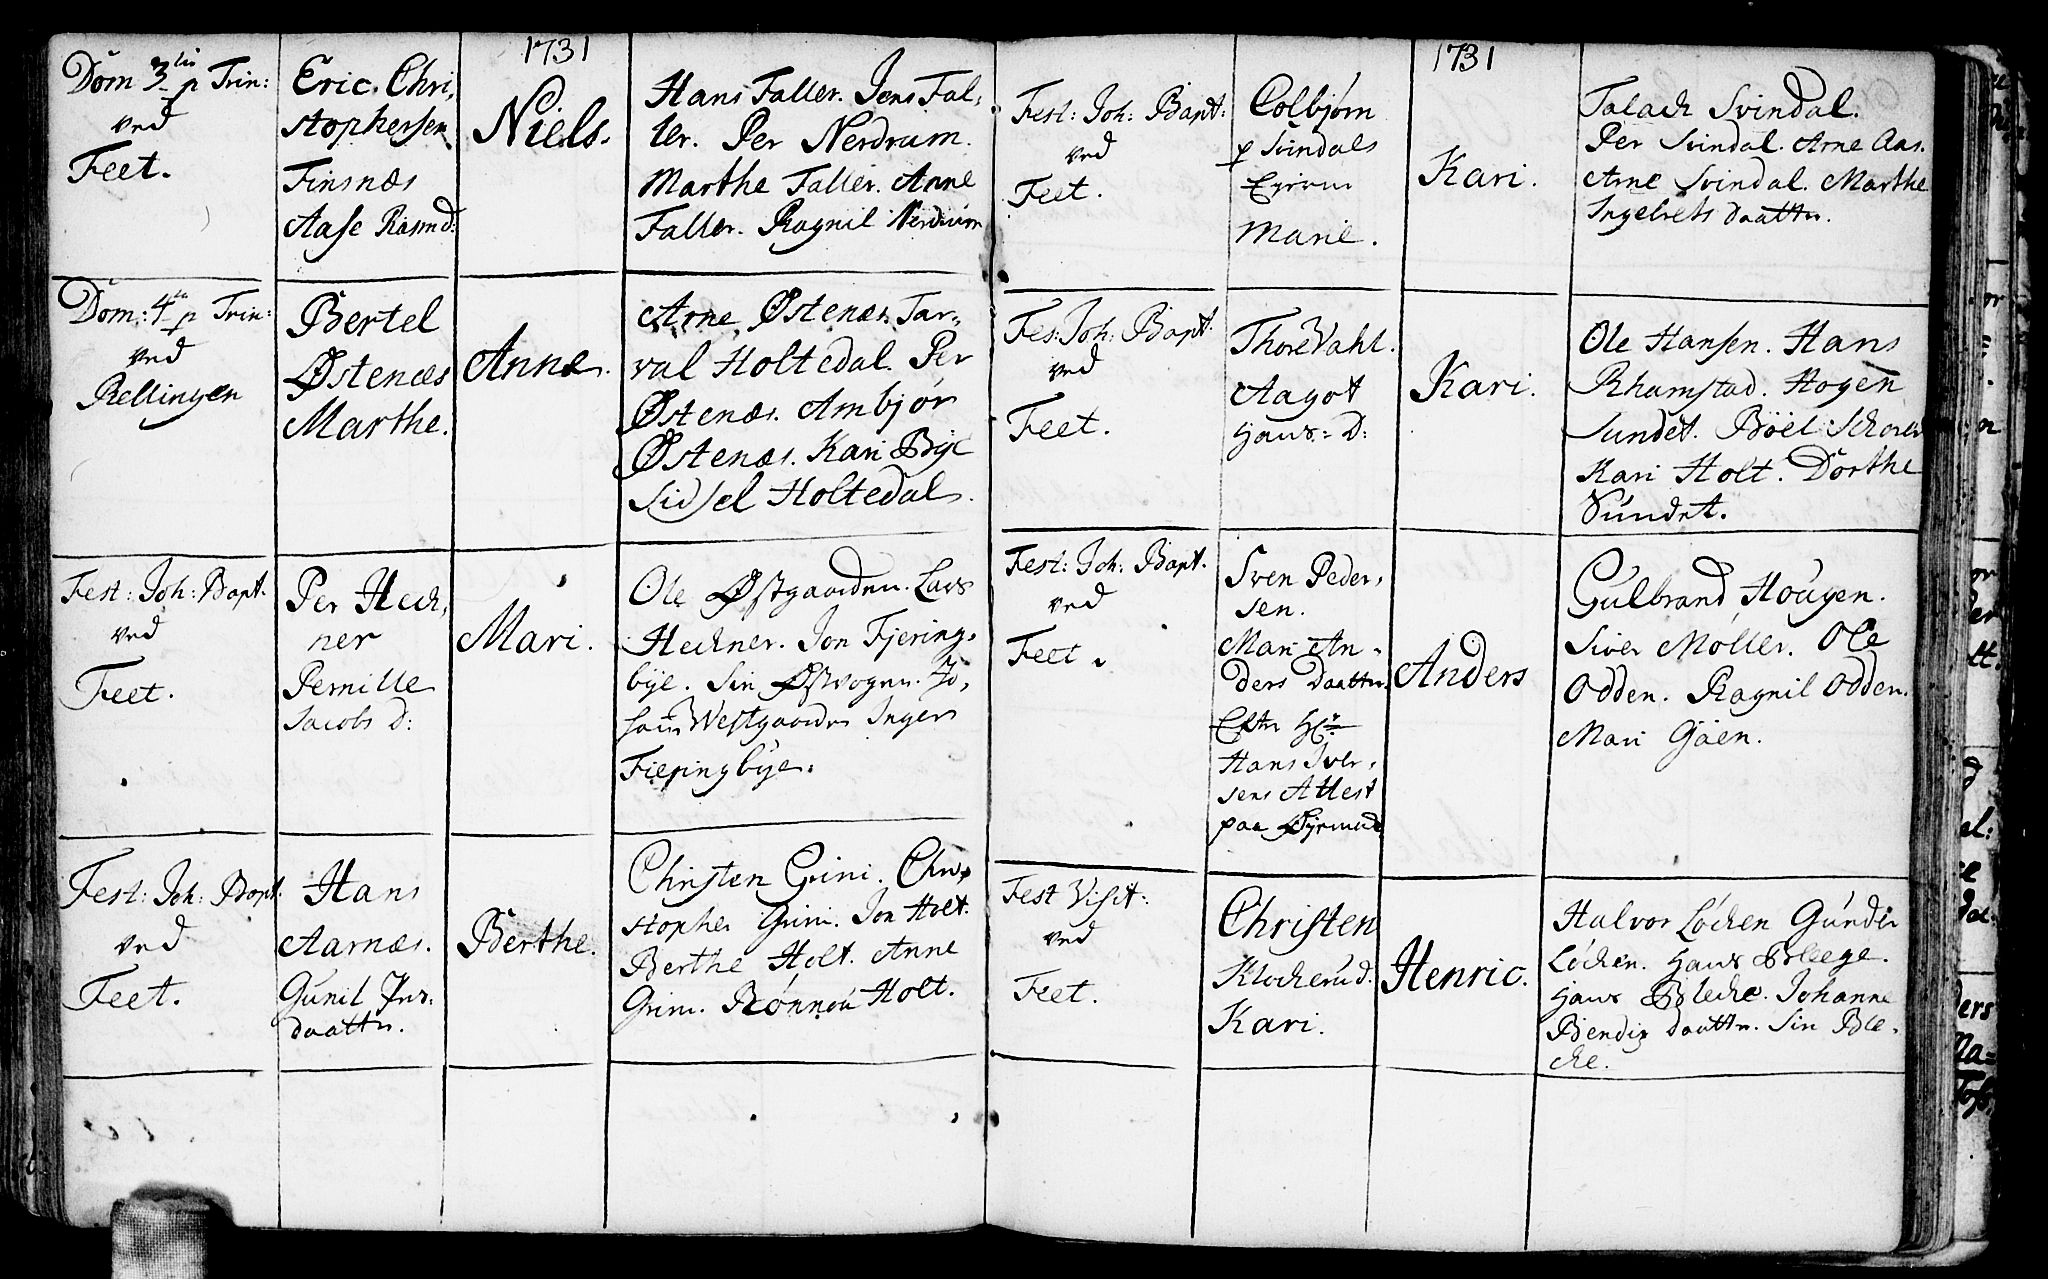 1731
Dom 3tia p Trin:
ved
Feet.
Eric Chri,
stophersen
Finsnæs
Aase Rasmd:
Niels.
Hans Faller. Jens Fal,
ler. Per Nerdrum.
Marthe Faller. Anne
Faller. Ragnil Nerdrum
Dom: 4ta p Trin:
ved
Rellingen
Bertel
Østenæs
Marthe.
Anne.
Arne Østenæs. Tar,
val Holtedal. Per
Østenæs. Ambjør
Østenæs. Kari Bye
Sidsel Holtedal.
Fest: Joh: Bapt.
ved
Feet.
Per Heck,
ner
Pernille
Jacobs d:
Mari.
Ole Østgaarden. Lars
Heckner. Jon Fjering,
bye. Siri Østvogn. Jo,
hanne Westgaarden Inger
Fieringbye.
Fest: Joh: Bapt.
ved
Feet.
Hans
Aarnæs.
Gunil Pers
daatter.
Berthe.
Christen Grini. Chri,
stopher Grini. Jon Holt.
Berthe Holt. Anne
Grini. Rønnou Holt.
1731
Fest: Joh: Bapt:
ved
Feet.
Colbjørn
p Svindals
Marie.
Kari.
Talach Svindal.
Per Svindal. Arne Aas.
Arne Svindal. Marthe
Ingelrets daatter.
Fes: Joh: Bapt.
ved
Feet.
Thore Vahl.
Aagot
Hans: D:
Kari.
Ole Hansen. Hans
Rhamstad. Hogen
Sundet. Bøel
Kari Holt. Dorthe
Sundet.
Fest: Joh: Bapt.
ved
Feet.
Sven Peder,
sen.
Mari An,
ders daatter
Efter Hr
Hans Iver,
sens Attest
paa
Anders
Gulbrand Hougen.
Siver Møller. Ole
Odden. Ragnil Odden.
Mari Gäen.
Fest Visit:
ved
Feet.
Christen
Klockerud.
Kari.
Henric.
Halvor Løcken Gunder
Løcken. Hans Bleege.
Hans Blecke. Johanne
Bendix daatter. Siri Ble,
cke.